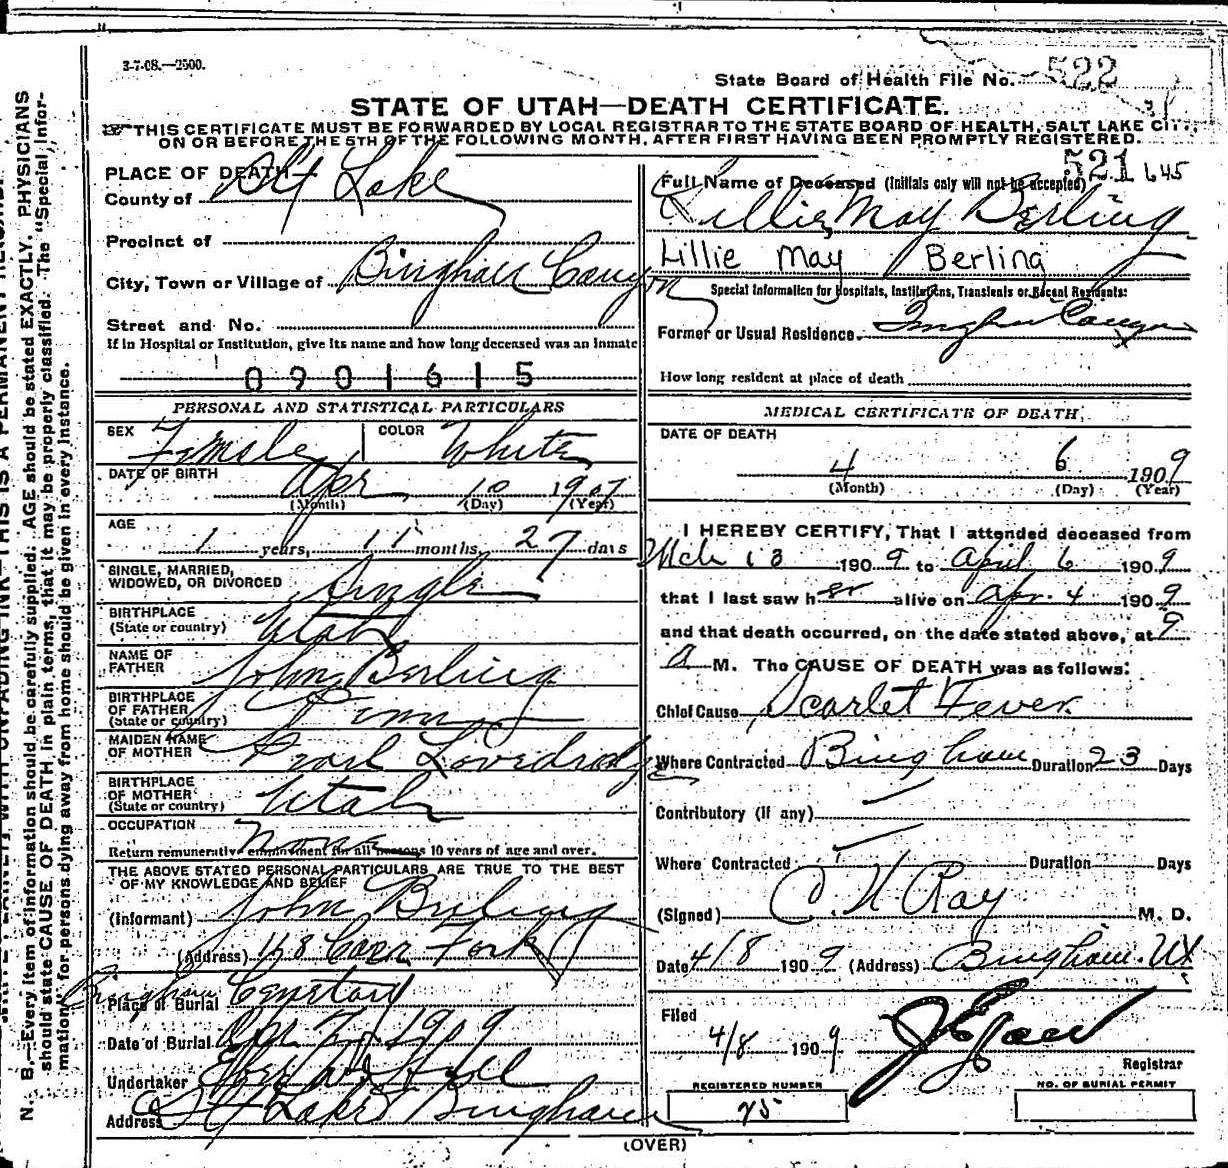 3-7-08.—2500.
State Board of Health File No. 522
STATE OF UTAH—DEATH CERTIFICATE.
THIS CERTIFICATE MUST BE FORWARDED BY LOCAL REGISTRAR TO THE STATE BOARD OF HEALTH, SALT LAKE CITY,
ON OR BEFORE THE 5TH OF THE FOLLOWING MONTH, AFTER FIRST HAVING BEEN PROMPTLY REGISTERED.
PLACE OF DEATH—
County of Salt Lake
Precinct of
City, Town or Village of Bingham Canyon
Street and No.
If in Hospital or Institution, give its name and how long deceased was an inmate
0901615
521 645
Full Name of Deceased (Initials only will not be accepted)
Lillie May Berling
Lillie May Berling
Special Information for Hospitals, Institutions, Transients or Recent Residents:
Former or Usual Residence. Bingham Canyon
How long resident at place of death
PERSONAL AND STATISTICAL PARTICULARS
SEX Female COLOR White
DATE OF BIRTH Apr 10 1907
(Month) (Day) (Year)
AGE 1 years, 11 months, 27 days
SINGLE, MARRIED,
WIDOWED, OR DIVORCED Single
BIRTHPLACE
(State or country) Utah
NAME OF
FATHER John Berling
BIRTHPLACE
OF FATHER
(State or country)
MAIDEN NAME
OF MOTHER Pearl
BIRTHPLACE
OF MOTHER
(State or country) Utah
OCCUPATION None
Return remunerative employment for all persons 10 years of age and over.
THE ABOVE STATED PERSONAL PARTICULARS ARE TRUE TO THE BEST
OF MY KNOWLEDGE AND BELIEF
(Informant) John Berling
(Address) 168 Carr Fork
Place of Burial Bingham Cemetary
Date of Burial Apr 7 1909
Undertaker
Address Salt Lake Bingham
MEDICAL CERTIFICATE OF DEATH
DATE OF DEATH
4 6 1909
(Month) (Day) (Year)
I HEREBY CERTIFY, That I attended deceased from
Mch 13 1909 to April 6 1909
that I last saw her alive on Apr. 4 1909
and that death occurred, on the date stated above, at 9
A M. The CAUSE OF DEATH was as follows:
Chief Cause Scarlet Fever
Where Contracted Bingham Duration 23 Days
Contributory (if any)
Where Contracted Duration Days
(Signed) Ray M. D.
Date 4/8 1909 (Address) Bingham. Ut
Filed
4/8 1909
Registrar
REGISTERED NUMBER
25
NO. OF BURIAL PERMIT
(OVER)
N. B.—Every item of information should be carefully supplied. AGE should be stated EXACTLY. PHYSICIANS
should state CAUSE OF DEATH in plain terms, that it may be properly classified. The "Special Infor-
mation" for persons dying away from home should be given in every instance.